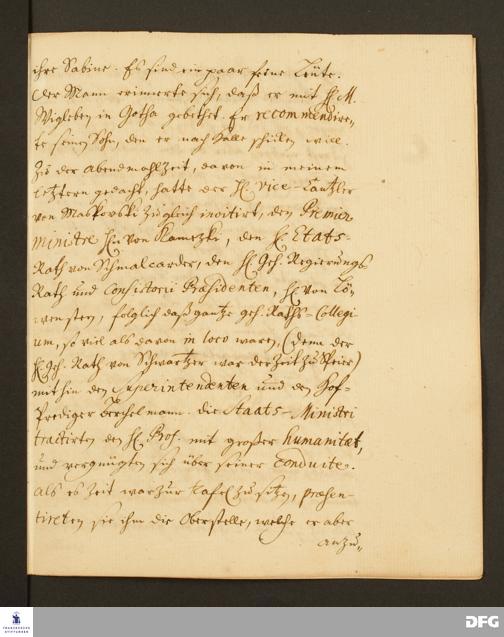 ihre Sabine. Es sind ein paar feine Leute.
Der Mann erinnerte sich, daß er mit H. M.
Wigleben in Gotha gebethet. Er recommendire-
te seinen Sohn, den er nach Halle schicken will.
Zu der Abendmahlzeit, davon in meinem
letztern gedacht, hatte der H. Vice-Cantzler
von Maskovski zugleich invitirt, den Premier
Ministre Hn von Kametzki, den H. Etats-
Rath von Schmalcarder, den H. Geh. Regierungs
Rath und Consistorii Præsidenten, H. von Lö-
wensten, folglich daß gantze geh. Raths-Collegi-
um, so viel als davon in loco waren, (denn der
H. Geh. Rath von Schwartzer war der Zeit zu Speier)
mithin den Superintendenten und den Hof-
Prediger Berchelmann. Die Staats-Ministri
tractirten den H. Prof. mit großer humanitæt,
und vergnügten sich über seiner Conduite.
Als es Zeit war zur Tafel zu sitzen, præsen-
tireten sie ihm die Oberstelle, welche er aber
anzu-
FRANCKESCHE
STIFTUNGEN
DFG